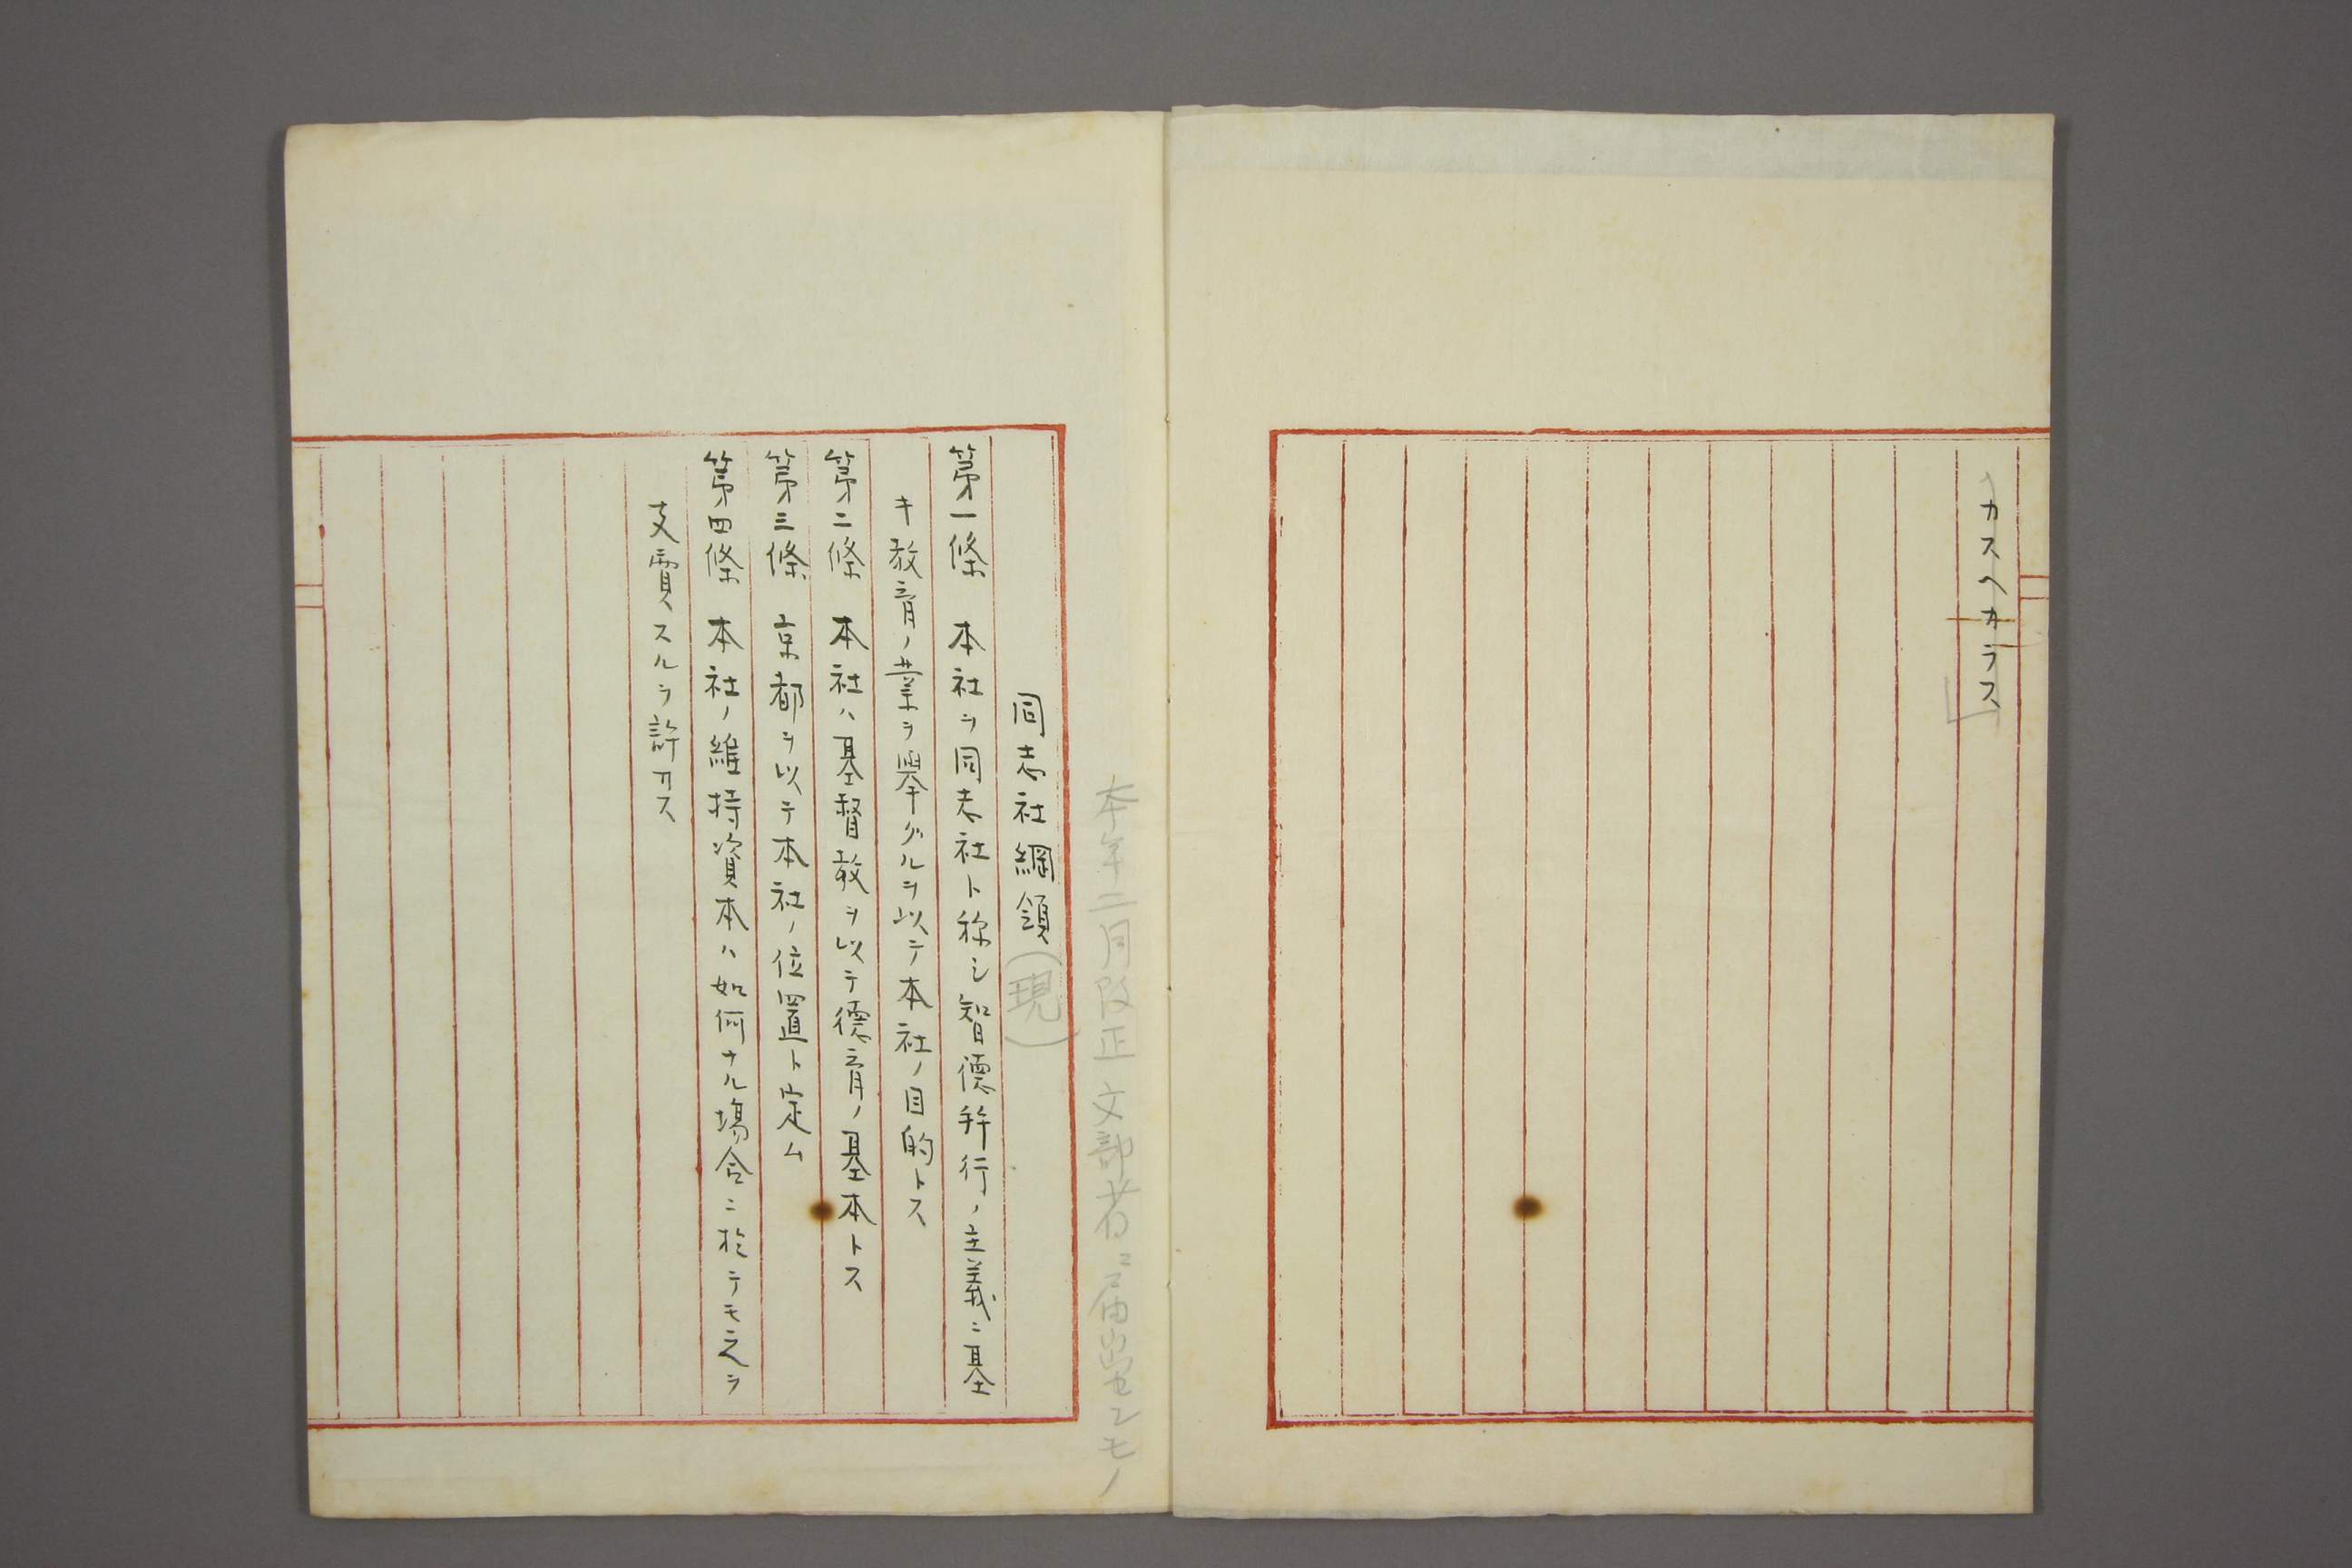 カスヘカラス
本年二月改正文部省ニ届出セシモノ
同志社綱領(現)
第一條　本社ヲ同志社ト称シ智德幷行ノ主義ニ基
キ敎育ノ業ヲ擧グルヲ以テ本社ノ目的トス
第二條　本社ハ基督敎ヲ以テ德育ノ基本トス
第三條　京都ヲ以テ本社ノ位置ト定ム
第四條　本社ノ維持資本ハ如何ナル塲合ニ於テモ之ヲ
支賣スルヲ許カス